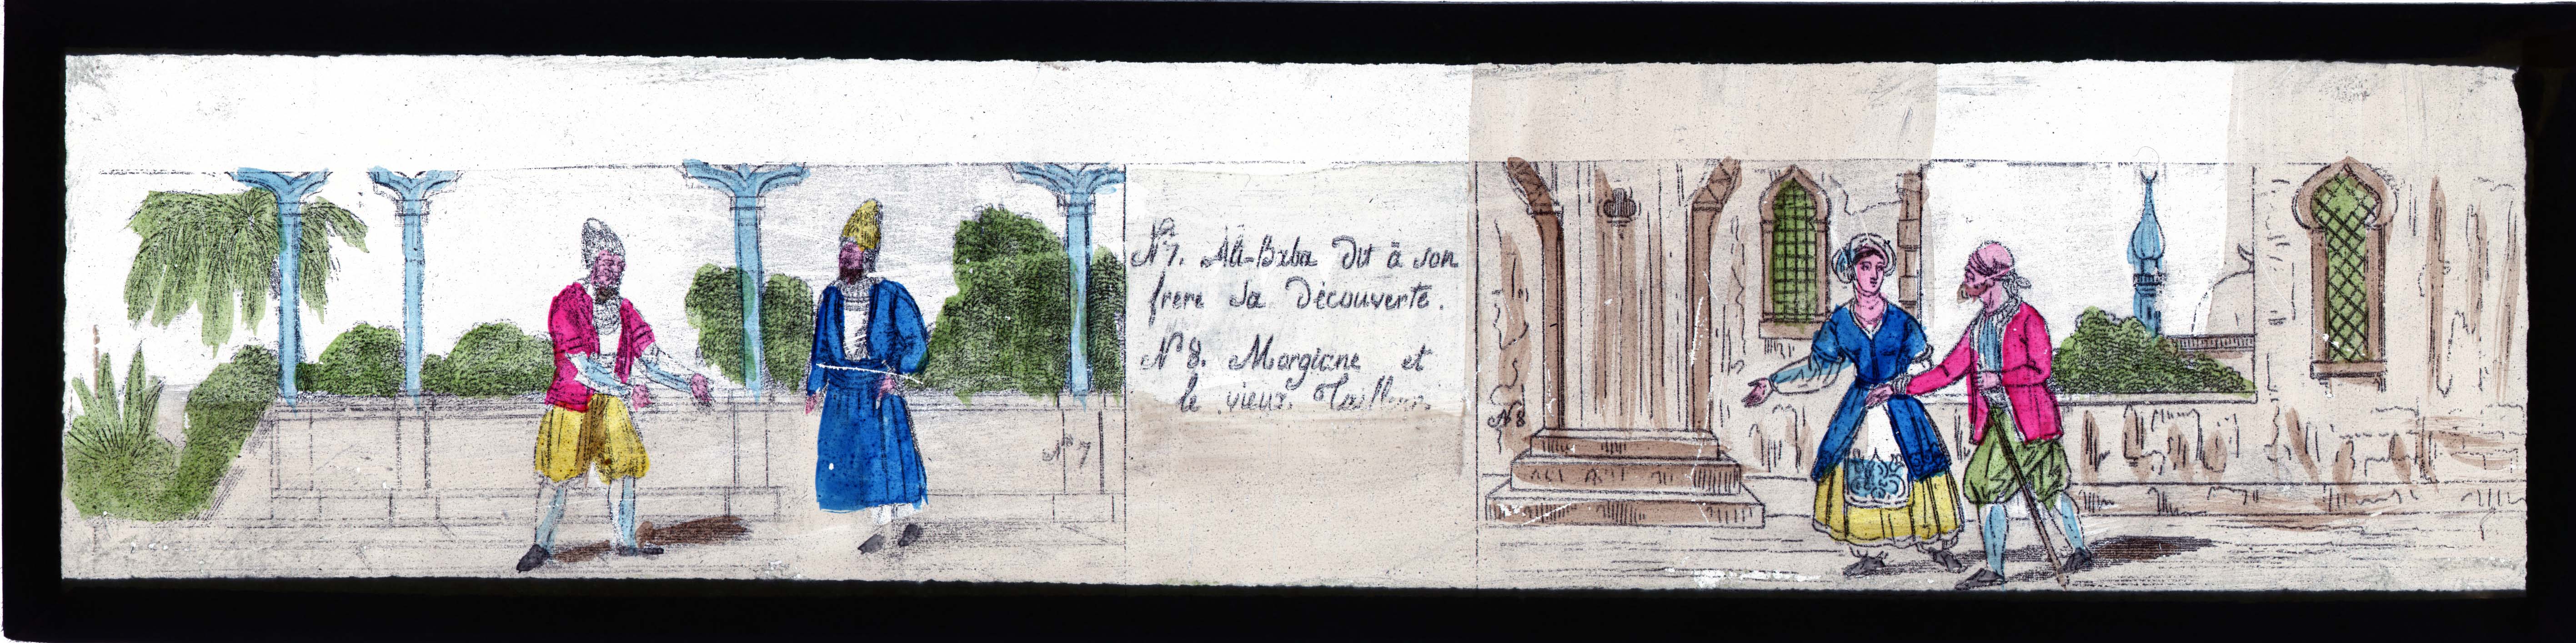 Nº 7. Ali-Baba dit à son
frere sa Découverte.
Nº 8. Morgiane et
le vieux Tailleur.
Nº 7
Nº 8